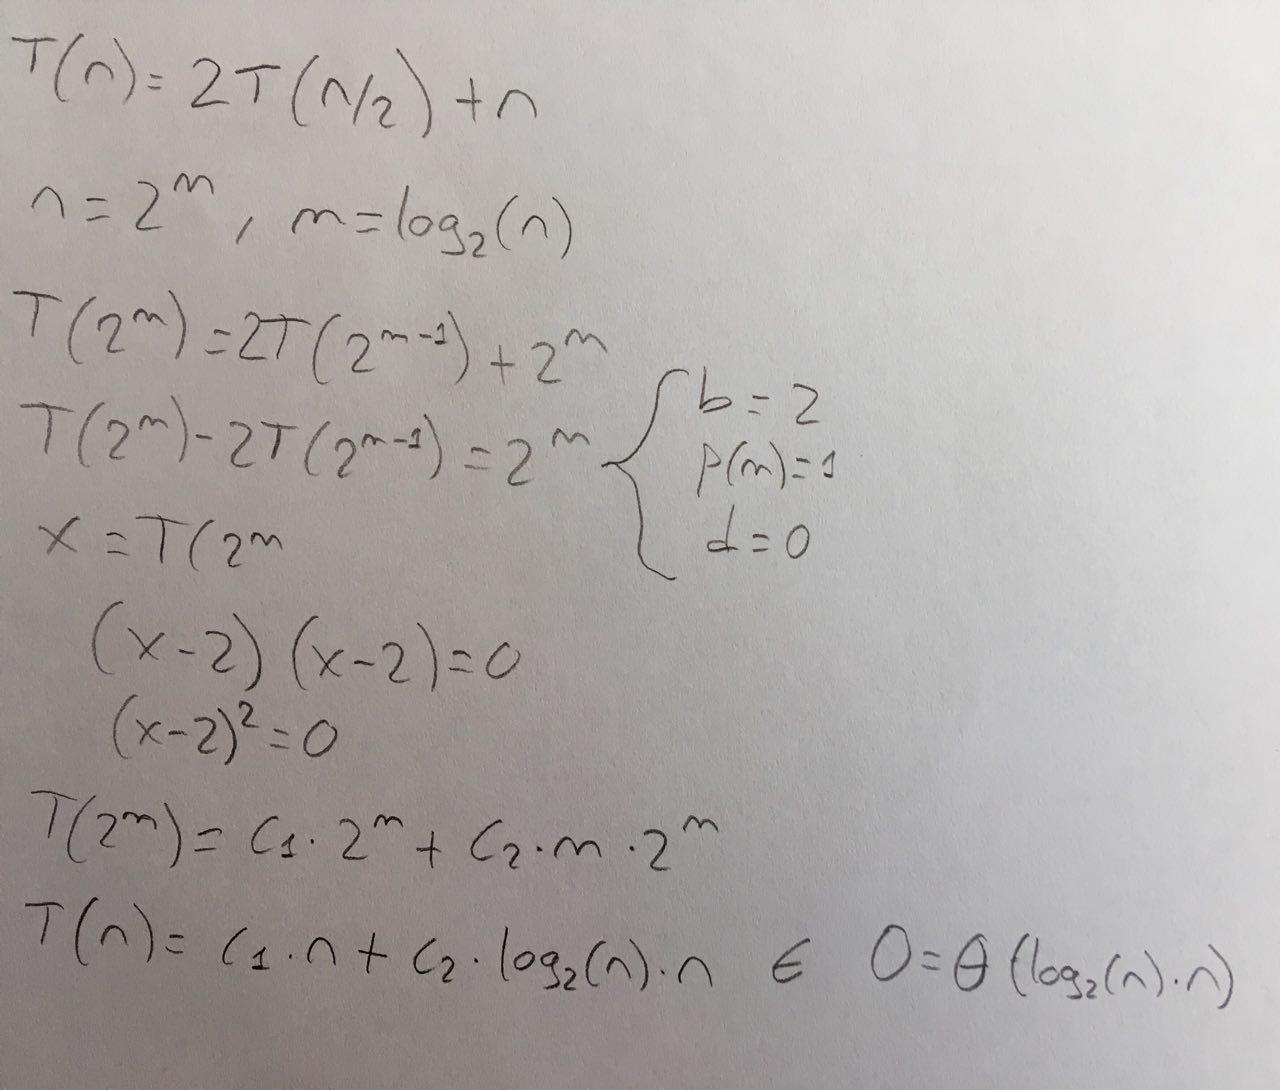 T(n) = 2T(n/2) + n
n = 2^m, m = log₂(n)
T(2^m) = 2T(2^(m-1)) + 2^m
T(2^m) - 2T(2^(m-1)) = 2^m { b = 2
p(m) = 1
d = 0
x = T(2^m
(x-2)(x-2) = 0
(x-2)² = 0
T(2^m) = C₁·2^m + C₂·m·2^m
T(n) = C₁·n + C₂·log₂(n)·n ∈ O = θ(log₂(n)·n)